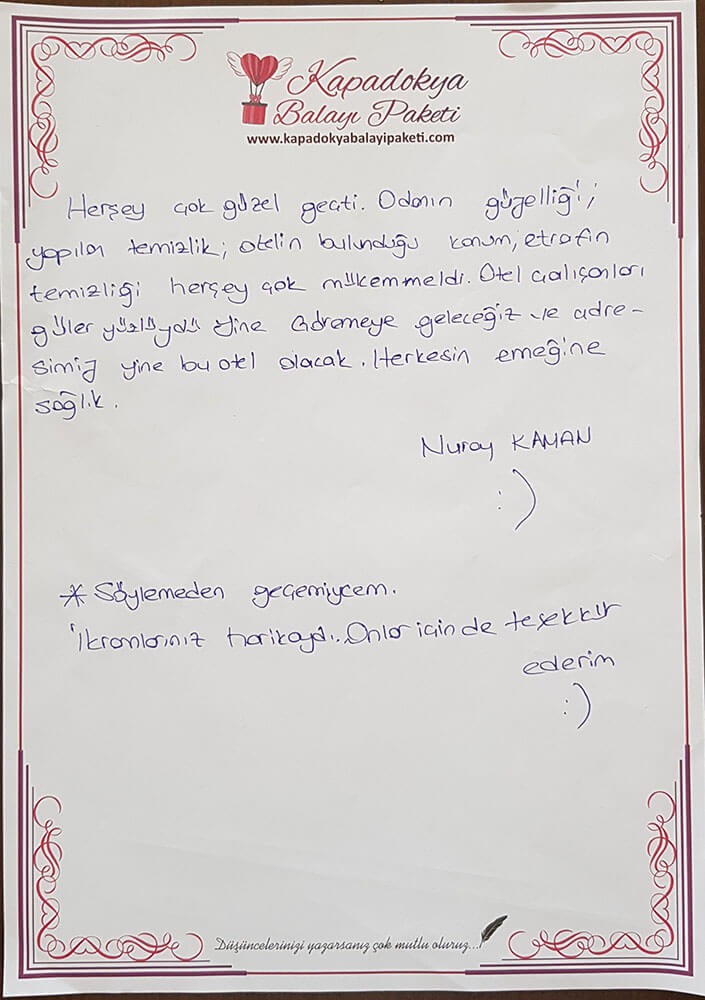 Kapadokya
Balayı Paketi
www.kapadokyabalayipaketi.com
Herşey çok güzel geçti. Odanın güzelliği;
yapılan temizlik; otelin bulunduğu konum; etrafın
temizliği herşey çok mükemmeldi. Otel çalışanları
güler yüzlüydü Yine Ürdremeye geleceğiz ve adre-
simiz yine bu otel olacak. Herkesin emeğine
sağlık.
Nuray KAMAN
:)
* Söylemeden geçemiycem.
İkramlarınız harikaydı.. Onlar için de teşekkür
ederim
:)
Düşüncelerinizi yazarsanız çok mutlu oluruz...!